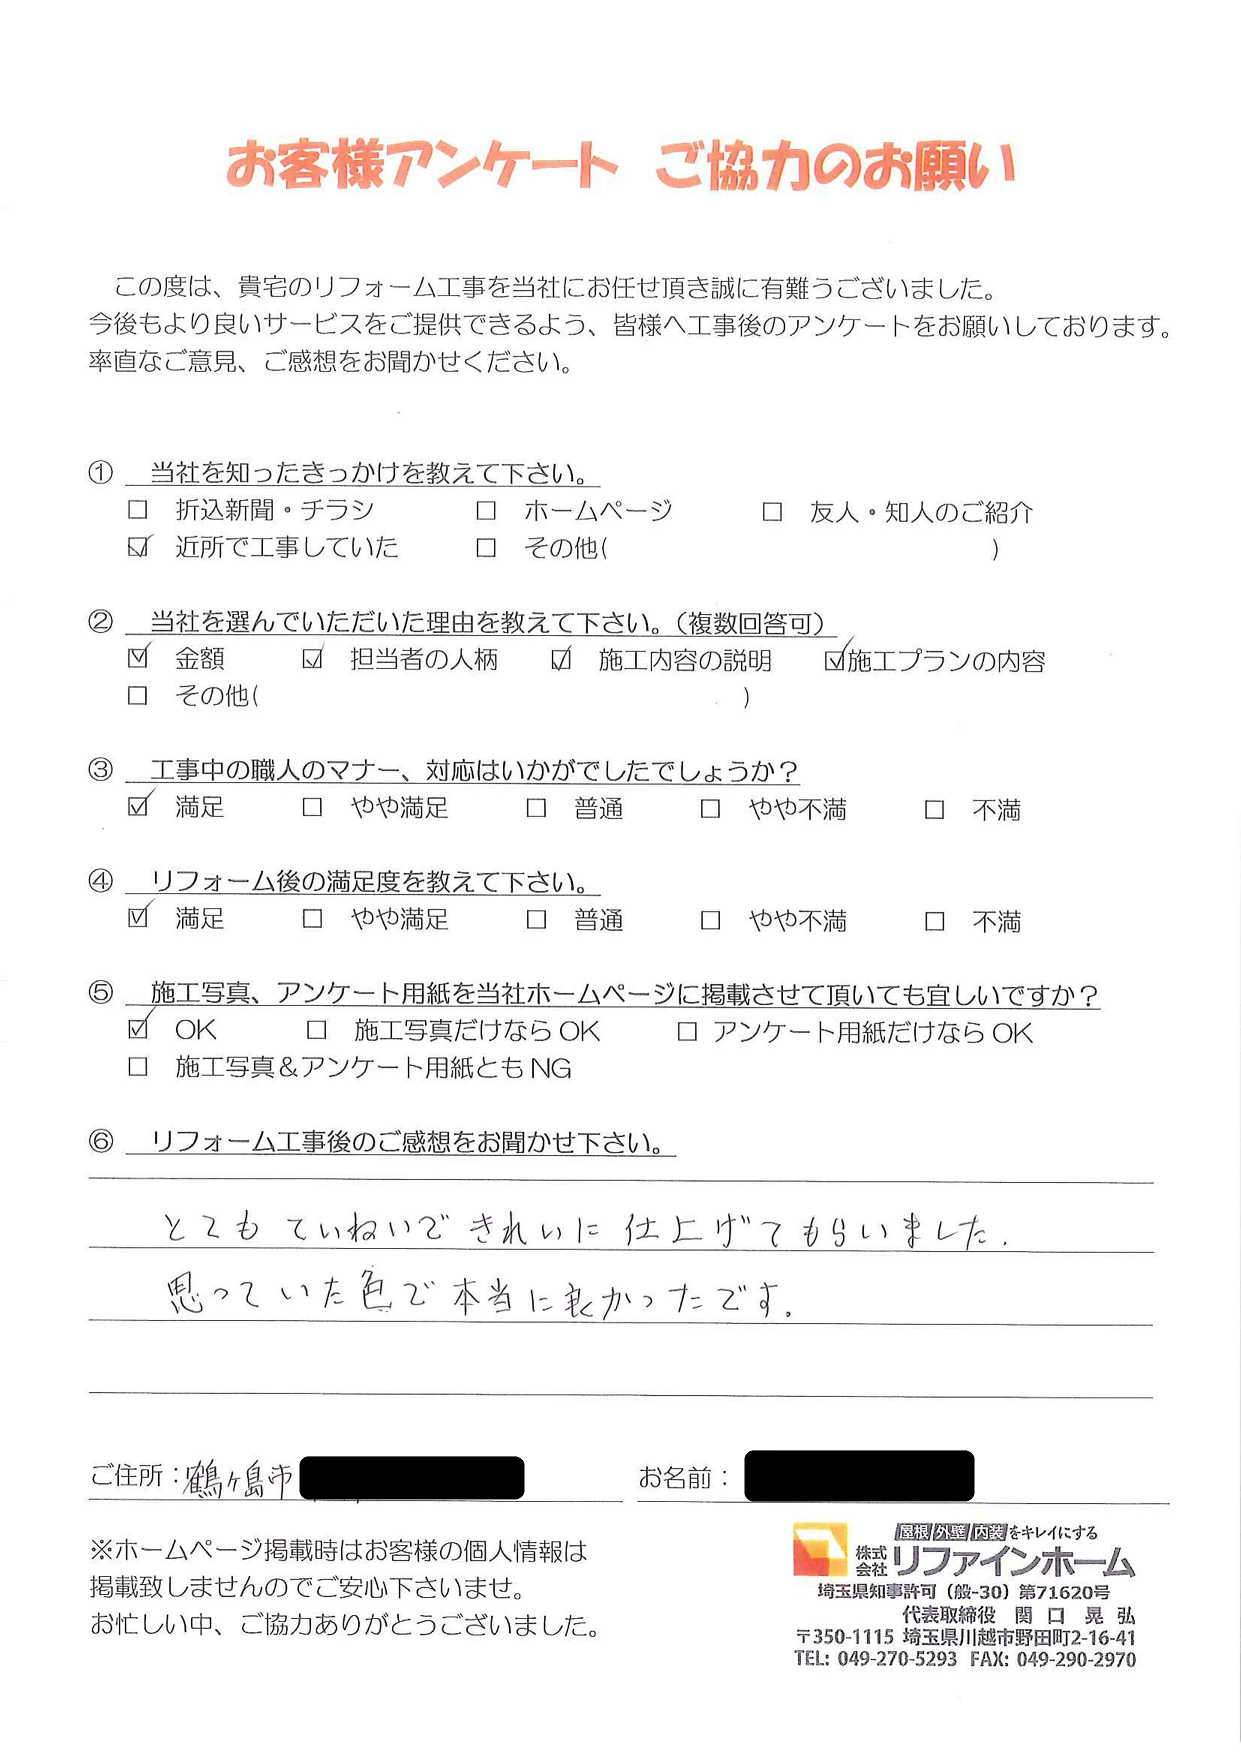 お客様アンケート ご協力のお願い
この度は、貴宅のリフォーム工事を当社にお任せ頂き誠に有難うございました。
今後もより良いサービスをご提供できるよう、皆様へ工事後のアンケートをお願いしております。
率直なご意見、ご感想をお聞かせください。
① 当社を知ったきっかけを教えて下さい。
□ 折込新聞・チラシ □ ホームページ □ 友人・知人のご紹介
☑ 近所で工事していた □ その他( )
② 当社を選んでいただいた理由を教えて下さい。（複数回答可）
☑ 金額 ☑ 担当者の人柄 ☑ 施工内容の説明 ☑施工プランの内容
□ その他( )
③ 工事中の職人のマナー、対応はいかがでしたでしょうか？
☑ 満足 □ やや満足 □ 普通 □ やや不満 □ 不満
④ リフォーム後の満足度を教えて下さい。
☑ 満足 □ やや満足 □ 普通 □ やや不満 □ 不満
⑤ 施工写真、アンケート用紙を当社ホームページに掲載させて頂いても宜しいですか？
☑ OK □ 施工写真だけならOK □ アンケート用紙だけならOK
□ 施工写真＆アンケート用紙ともNG
⑥ リフォーム工事後のご感想をお聞かせ下さい。
とてもていねいできれいに仕上げてもらいました.
思っていた色で本当に良かったです.
ご住所：鶴ヶ島市 お名前：
※ホームページ掲載時はお客様の個人情報は
掲載致しませんのでご安心下さいませ。
お忙しい中、ご協力ありがとうございました。
屋根 外壁 内装をキレイにする
株式会社 リファインホーム
埼玉県知事許可（般-30）第71620号
代表取締役 関口晃弘
〒350-1115 埼玉県川越市野田町2-16-41
TEL: 049-270-5293 FAX: 049-290-2970